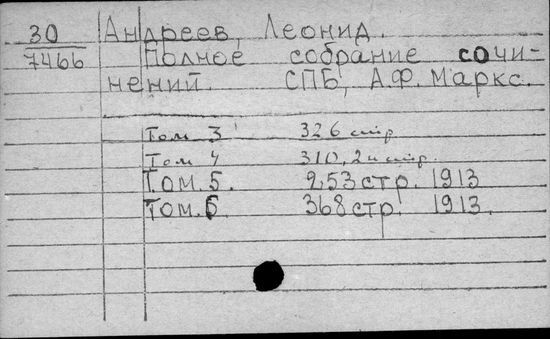 30
7466
Андреев, Леонид.
Полное собрание сочи-
нений. СПБ, А.Ф. Маркс.
Том 3 326 стр
Том 4 310, 2н стр.
Том. 5. 253 стр. 1913
Том. 6 368 стр. 1913.